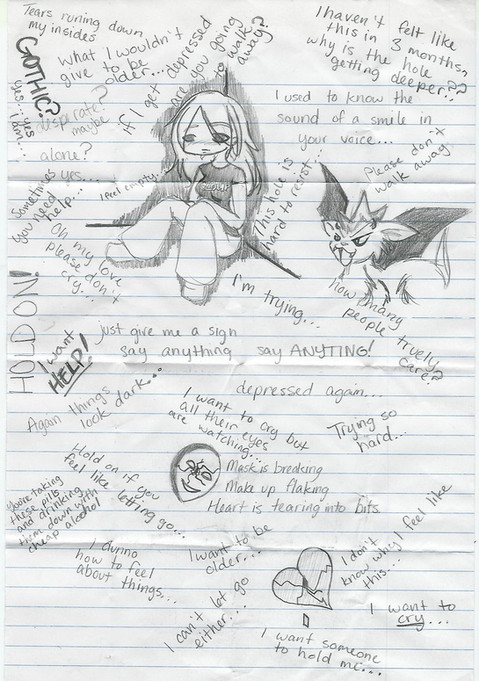 Tears runing down
my insides
GOTHIC?
yes... yes
i am...
What I wouldn't
give to be
older...
if I get depressed
are you going
to walk
away?
I haven't felt like
this in 3 months,
why is the hole
getting deeper...??
desperate?
maybe
alone?
sometimes yes...
you need
help...
I used to know the
sound of a smile in
your voice...
Please don't
walk away
I feel empty...
This hole is
hard to resist...
Oh my love
please don't
cry...
HOLD ON!
I'm trying...
how many
people truely
care?
I want
HELP!
just give me a sign
say anything say ANYTING!
depressed again...
Again things
look dark...
I want to cry but
all their eyes
are watching...
Trying so
hard...
Hold on if you
feel like letting go...
Mask is breaking
Make up flaking
Heart is tearing into bits
You're taking
these pills
and drinking
them down with
cheap alcohol
I dunno
how to feel
about things...
I want to be
older...
I don't
know why I feel like
this...
I can't let go
either...
I want someone
to hold me...
I want to
cry...